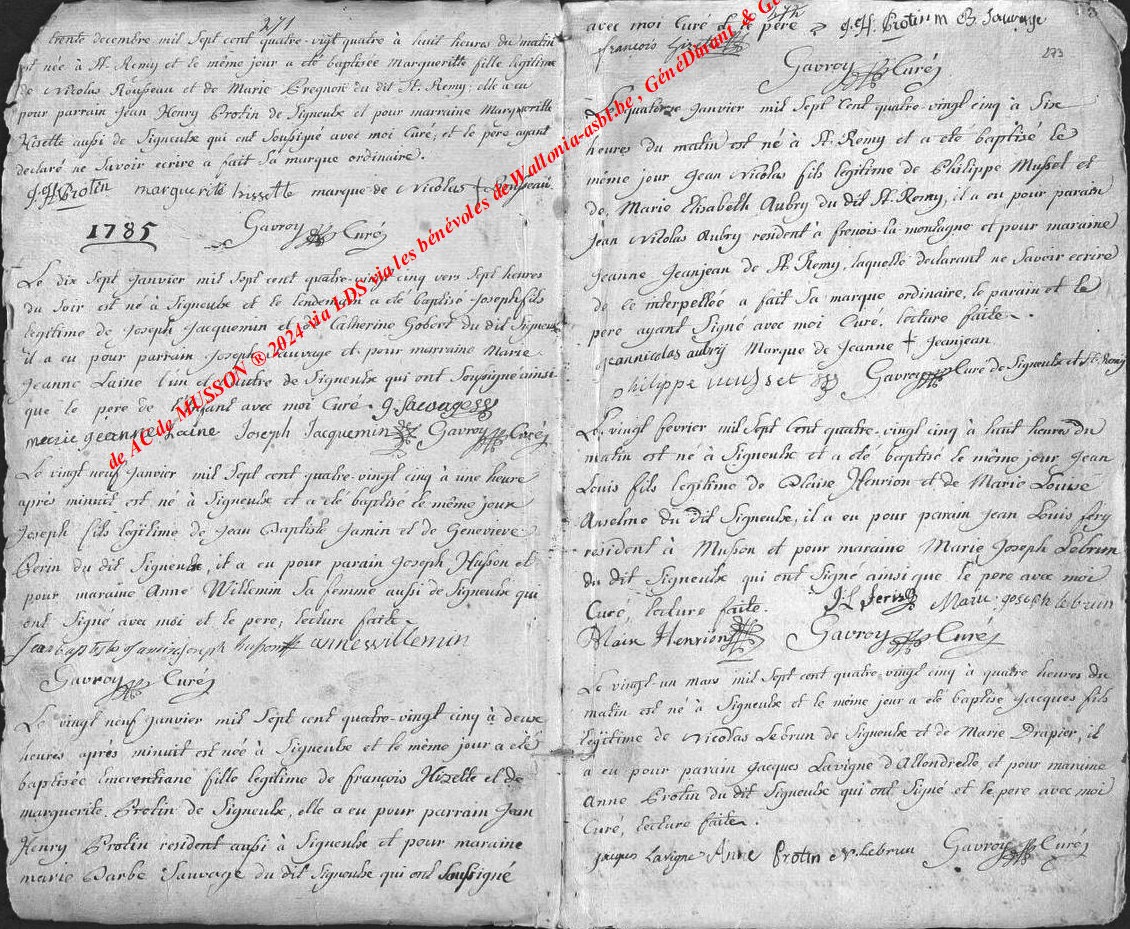 271
trente decembre mil Sept cent quatre-vingt quatre à huit heures du matin
est née à St. Remy et le même jour a été baptisée Margueritte fille legitime
de Nicolas Rousseau et de Marie Pregnon du dit St. Remy; elle a eu
pour parrain Jean Henry Protin de Signeulx et pour marraine Margueritte
Hisette aussi de Signeulx qui ont Soussigné avec moi Curé, et le père ayant
declaré ne Savoir ecrire a fait Sa marque ordinaire.
J. H. Protin marguerite hissette marque de Nicolas + Rousseau
1785 Gavroy Curé
Le dix Sept Janvier mil Sept cent quatre-vingt cinq vers Sept heures
du Soir est né à Signeulx et le lendemain a été baptisé Joseph fils
legitime de Joseph Jacquemin et de Catherine Gobert du dit Signeulx
il a eu pour parrain Joseph Sauvage et pour marraine Marie
Jeanne Laine l'un et l'autre de Signeulx qui ont Soussigné ainsi
que le pere de l'enfant avec moi Curé. J. Sauvage
marie jeanne Laine Joseph Jacquemin Gavroy Curé
Le vingt neuf Janvier mil Sept cent quatre-vingt cinq à une heure
après minuit est né à Signeulx et a été baptisé le même jour
Joseph fils legitime de Jean Baptiste Jamin et de Genevieve
Perin du dit Signeulx, il a eu pour parain Joseph Husson et
pour maraine Anne Willemin Sa femme aussi de Signeulx qui
ont Signé avec moi et le pere; lecture faite.
Jean baptiste jamin Joseph husson anne willemin
Gavroy Curé
Le vingt neuf Janvier mil Sept cent quatre-vingt cinq à deux
heures après minuit est née à Signeulx et le même jour a été
baptisée Emerentiane fille legitime de françois Hizette et de
marguerite Protin de Signeulx, elle a eu pour parrain Jean
Henry Protin resident aussi à Signeulx et pour maraine
marie Barbe Sauvage du dit Signeulx qui ont Soussigné
avec moi Curé et le père J. H. Protin M B Sauvage
françois
273
Gavroy Curé
Le quatorze Janvier mil Sept Cent quatre-vingt cinq à Six
heures du matin est né à St. Remy et a été baptisé le
même jour Jean Nicolas fils legitime de Philippe Musset et
de Marie Elisabeth Aubry du dit St. Remy, il a eu pour parain
Jean Nicolas Aubry resident à frenois-la-montagne et pour maraine
Jeanne Jeanjean de St. Remy, laquelle declarant ne Savoir ecrire
de ce interpellée a fait Sa marque ordinaire, le parain et le
pere ayant Signé avec moi Curé, lecture faite.
jeannicolas aubrÿ Marque de Jeanne + Jeanjean
philippe musset Gavroy Curé de Signeulx et St. Remy
Le vingt fevrier mil Sept Cent quatre-vingt cinq à huit heures du
matin est né à Signeulx et a été baptisé le même jour Jean
Louis fils legitime de Blaise Henrion et de Marie Louise
Anselme du dit Signeulx, il a eu pour parain Jean Louis fery
resident à Musson et pour maraine Marie Joseph Lebrun
du dit Signeulx qui ont Signé ainsi que le pere avec moi
Curé, lecture faite. J. L feri Marie joseph lebrun
Blaise Henrion Gavroy Curé
Le vingt-un mars mil Sept cent quatre-vingt cinq à quatre heures du
matin est né à Signeulx et le même jour a été baptisé Jacques fils
legitime de Nicolas Lebrun de Signeulx et de Marie Drapier, il
a eu pour parain Jacques Lavigne d'Allondrelle et pour maraine
Anne Protin du dit Signeulx qui ont Signé et le pere avec moi
Curé, lecture faite.
jacques Lavigne Anne Protin N. Lebrun Gavroy Curé
de AC de MUSSON ® 2024 via LDS via les bénévoles de Wallonia-asbl.be , GénéDurant & Gé